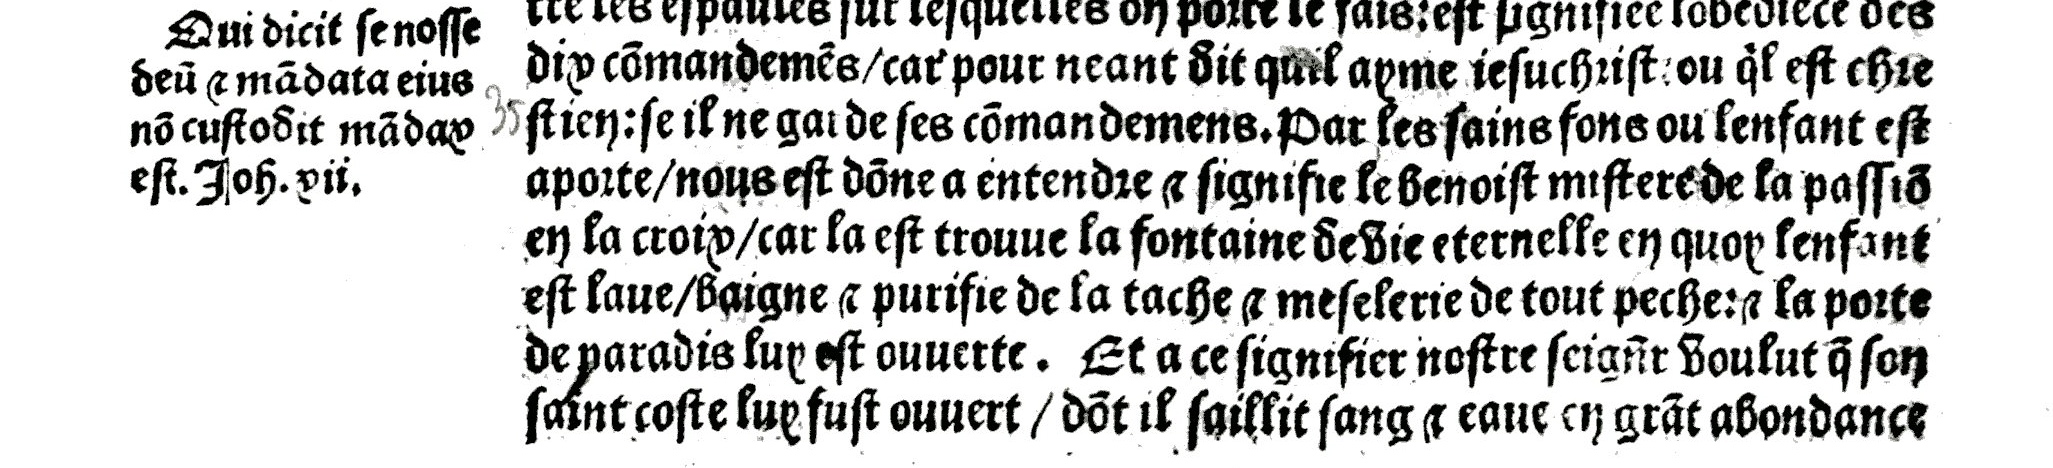 Qui dicit se nosse
deū ⁊ mādata eius
nō custodit mādax
est. Joh. vii.
tre les espaules sur lesquelles on porte le fais: est signifiee lobediēce des
dix cōmandemēs/car pour neant dit quil ayme iesuchrist: ou q̇l est chre
stien: se il ne garde ses cōmandemens. Par les sains fons ou lenfant est
aporte/nous est dōne a entendre ⁊ signifie le benoist mistere de la passiō
en la croix/car la est trouue la fontaine de vie eternelle en quoy lenfant
est laue/baigne ⁊ purifie de la tache ⁊ meselerie de tout peche: ⁊ la porte
de paradis luy est ouuerte. Et a ce signifier nostre seigñr voulut q̄ son
saint coste luy fust ouuert / dōt il saillit sang ⁊ eaue en grāt abondance
35